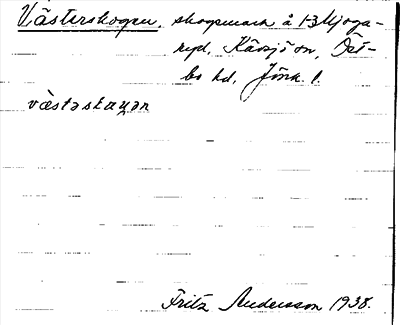 Västerskogen, skogsmark å 1-3 Mjoga-
ryd, Kävsjö sn, Öst-
bo hd, Jönk. l.
västəskaɯən
Fritz Andersson 1938.